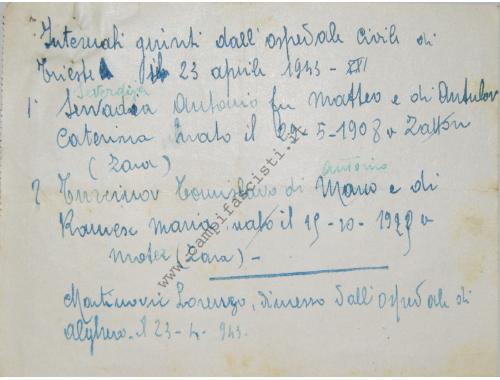 Internati giunti dall'ospedale Civile di
Trieste il 23 aprile 1943-XXI
1° Antonio fu Matteo e di Antulov
Caterina nato il 29-5-1908 a
(Zara)
Antonio
2 Tomislavo di Mario e di
Maria nato il 15-10- a
(Zara) -
Martinović Lorenzo, dimesso dall'ospedale di
Alghero il 23-4-943.
www.campifascisti.it